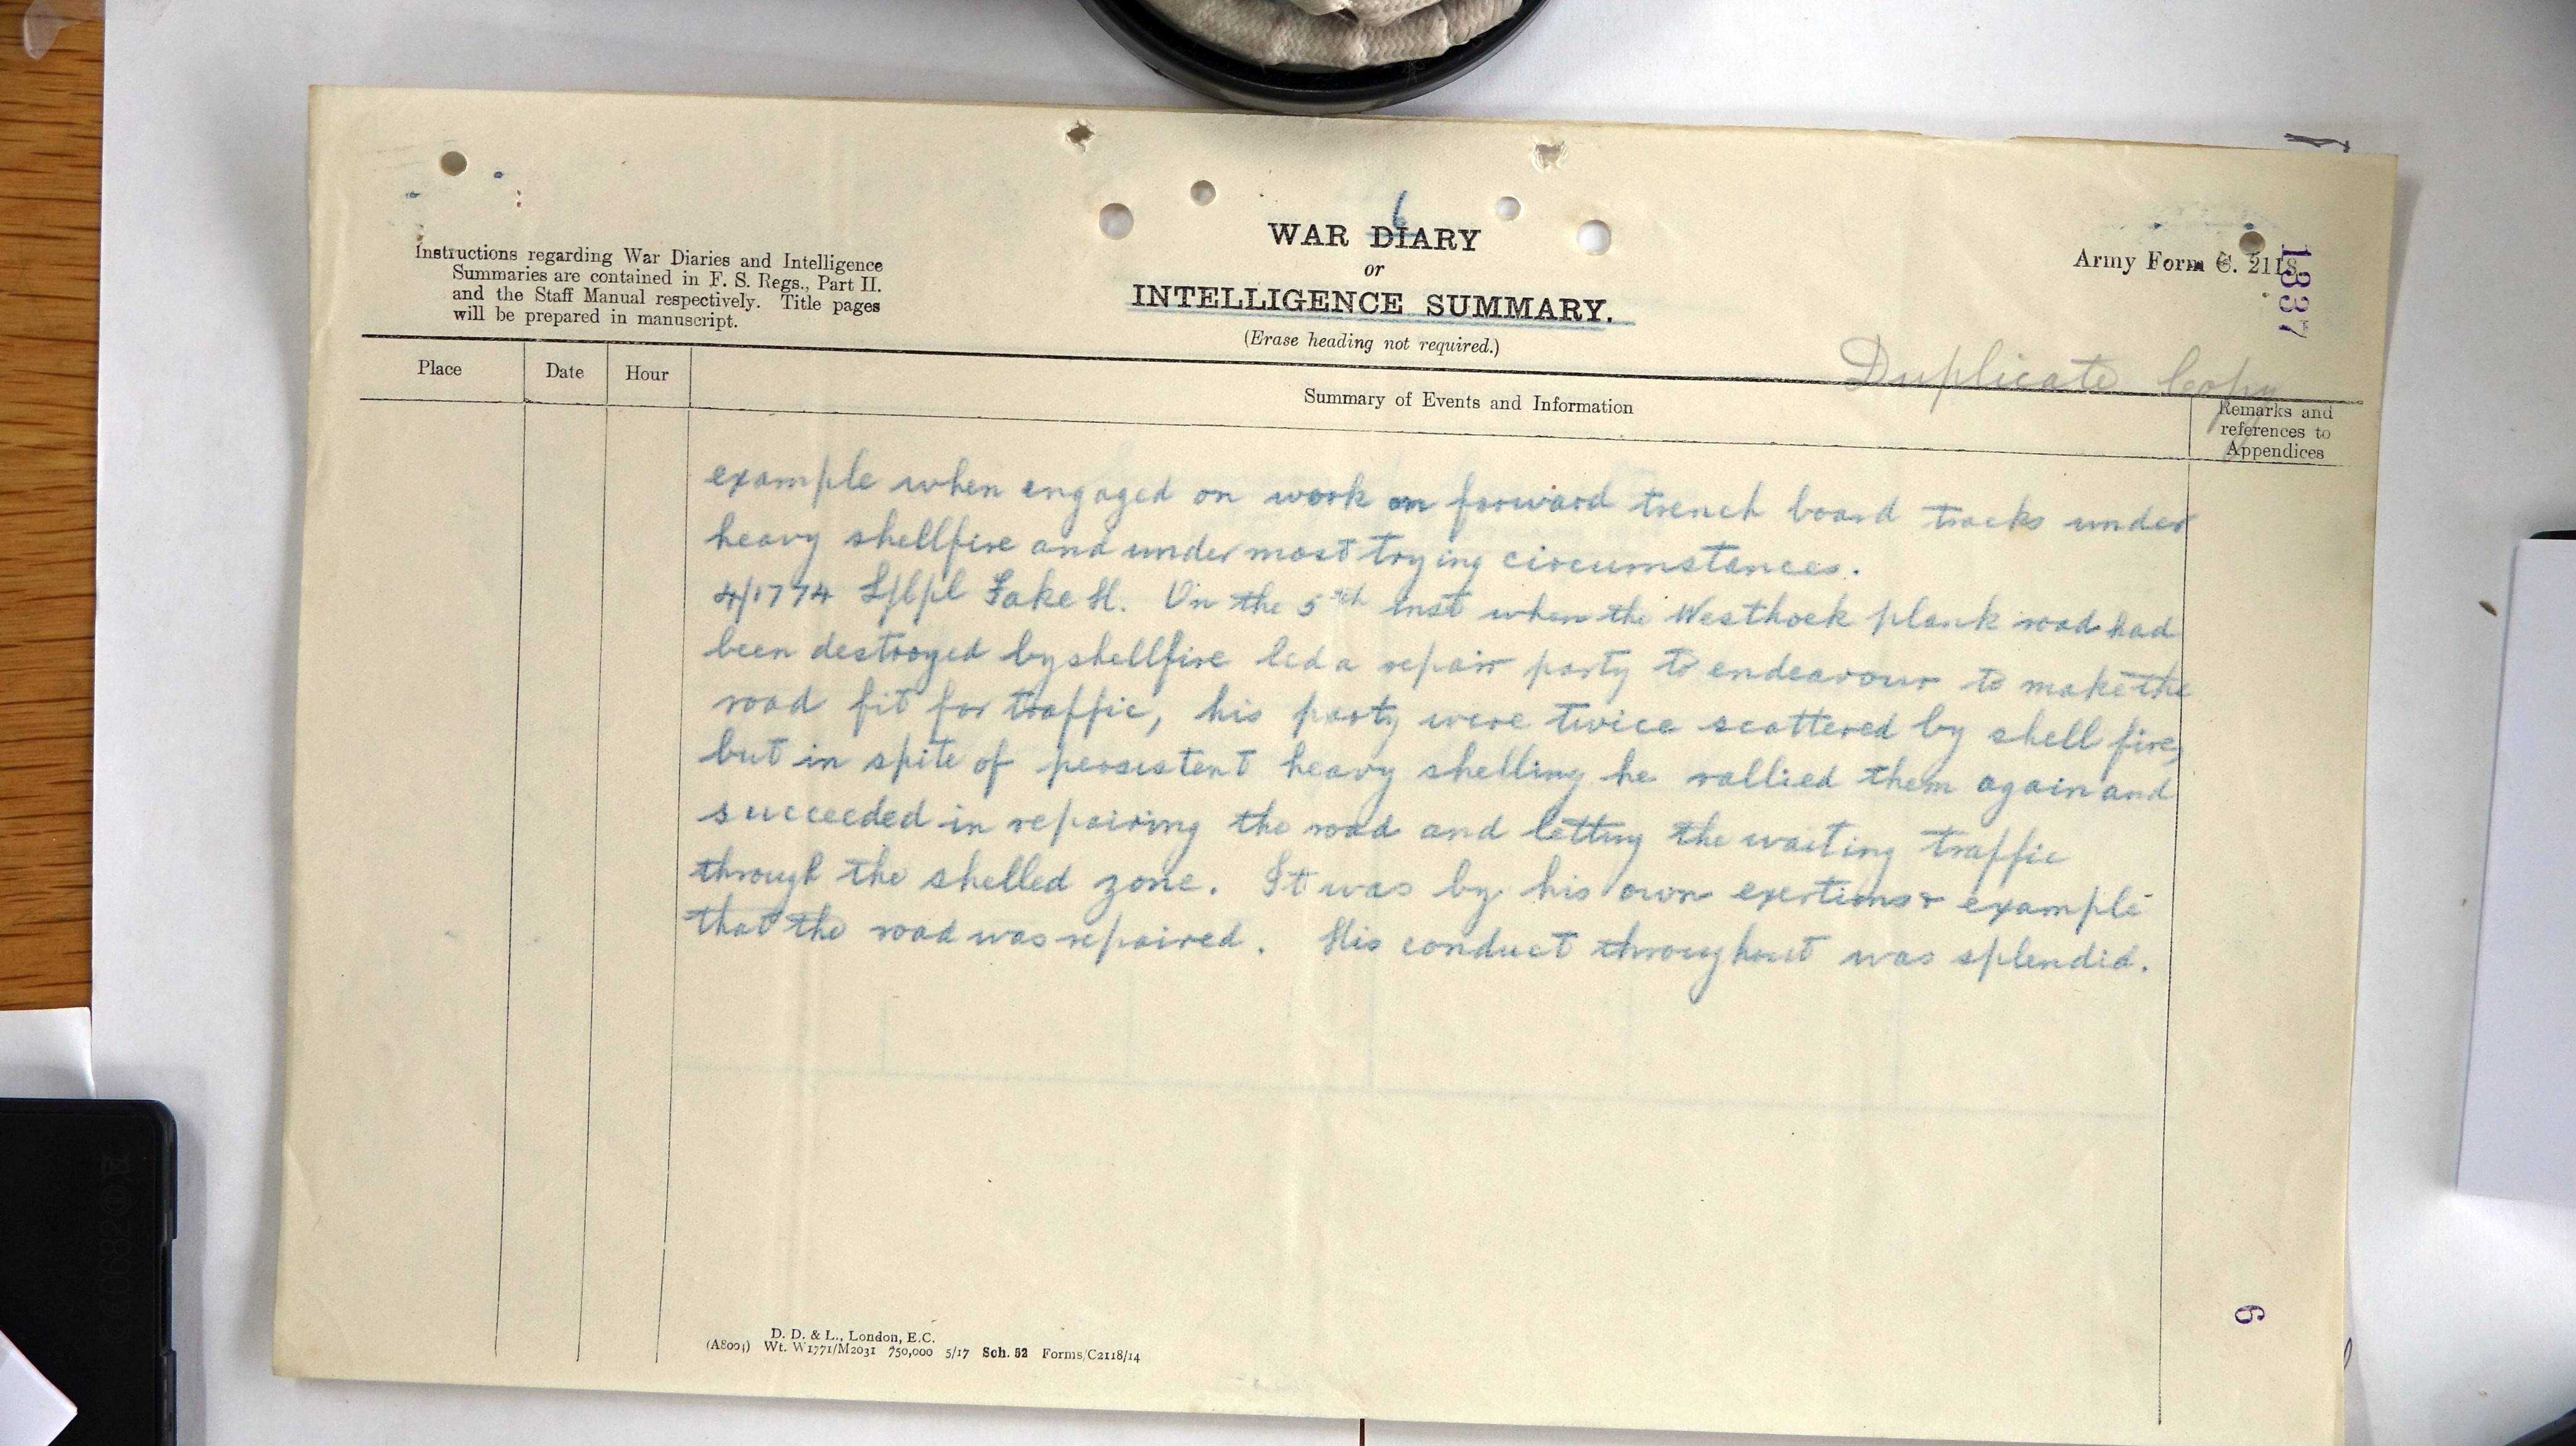 6
WAR DIARY
or
INTELLIGENCE SUMMARY.
(Erase heading not required.)
Instructions regarding War Diaries and Intelligence
Summaries are contained in F. S. Regs., Part II.
and the Staff Manual respectively. Title pages
will be prepared in manuscript.
Army Form C. 2118.
1337
Duplicate Copy
Place
Date
Hour
Summary of Events and Information
Remarks and
references to
Appendices
example when engaged on work on forward trench board tracks under
heavy shellfire and under most trying circumstances.
4/1774 L/Cpl H. On the 5th inst when the Westhoek plank road had
been destroyed by shellfire led a repair party to endeavour to make the
road fit for traffic, his party were twice scattered by shell fire,
but in spite of persistent heavy shelling he rallied them again and
succeeded in repairing the road and letting the waiting traffic
through the shelled zone. It was by his own exertions & example
that the road was repaired. His conduct throughout was splendid.
D. D. & L., London, E.C.
(A8004) Wt. W1771/M2031 750,000 5/17 Sch. 52 Forms/C2118/14
6